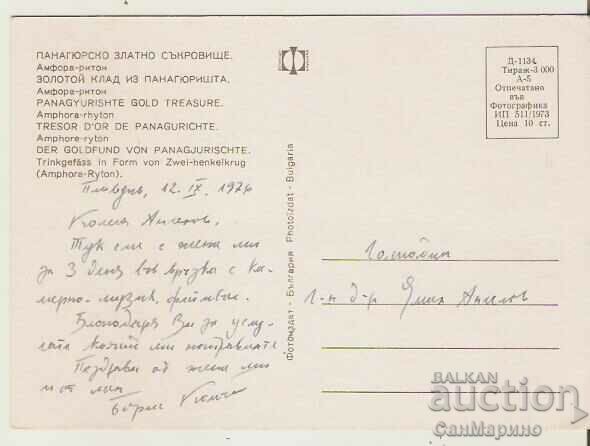 ПАНАГЮРСКО ЗЛАТНО СЪКРОВИЩЕ.
Амфора-ритон
ЗОЛОТОЙ КЛАД ИЗ ПАНАГЮРИШТА.
Амфора-ритон
PANAGYURISHTE GOLD TREASURE.
Amphora-rhyton
TRESOR D'OR DE PANAGURICHTE.
Amphore-ryton
DER GOLDFUND VON PANAGJURISCHTE.
Trinkgefäss in Form von Zwei-henkelkrug
(Amphora-Ryton).
Пловдив, 12. IX. 1974
Ангелов,
Тук съм с жена ми
за 3 дена във връзка с Ка-
мерно-музик. фестивал.
Благодаря Ви за услу-
гата която ми направихте
Поздрави от жена ми
и от мен
Фотоиздат - България Photoizdat - Bulgaria
Д-1134
Тираж-3 000
А-5
Отпечатано
във
Фотографика
ИП 511/1973
Цена 10 ст.
Господин
Г-н д-р Ангелов
BALKAN
auction
СанМарино